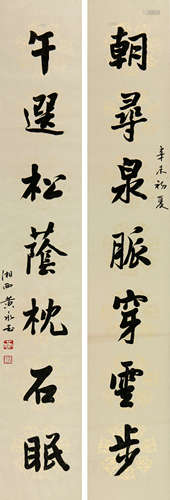 朝尋泉脈穿雲步
辛未初夏
午選松蔭枕石眠
湘西黄永玉